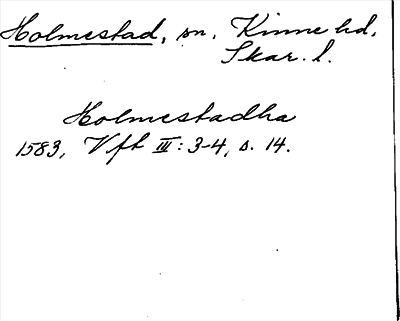 Holmestad, sn. Kinne hd,
Skar. l.
Holmestadha
1583, Vft III: 3-4, s. 14.